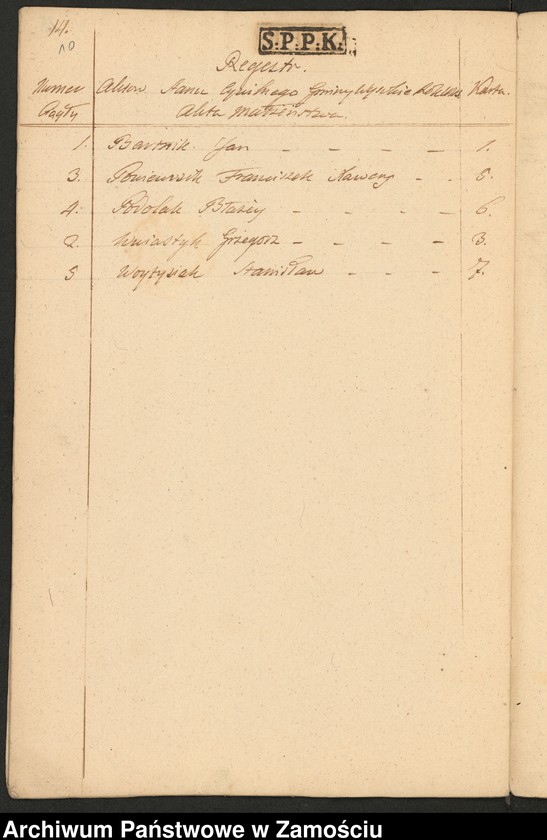 14.
10
S.P.P.K.
Regestr.
Numer Aktow Stanu Cywilnego Gminy Karta
Ciągły Akta Małżeństwa.
1. Bartnik Jan - - - - - 1.
3. Franciszek Xawery - - 5.
4. Podolak Błażey - - - - - 6.
2. Grzegorz - - - - - 3.
5 Woytysiak Stanisław - - - 7.
Archiwum Państwowe w Zamościu